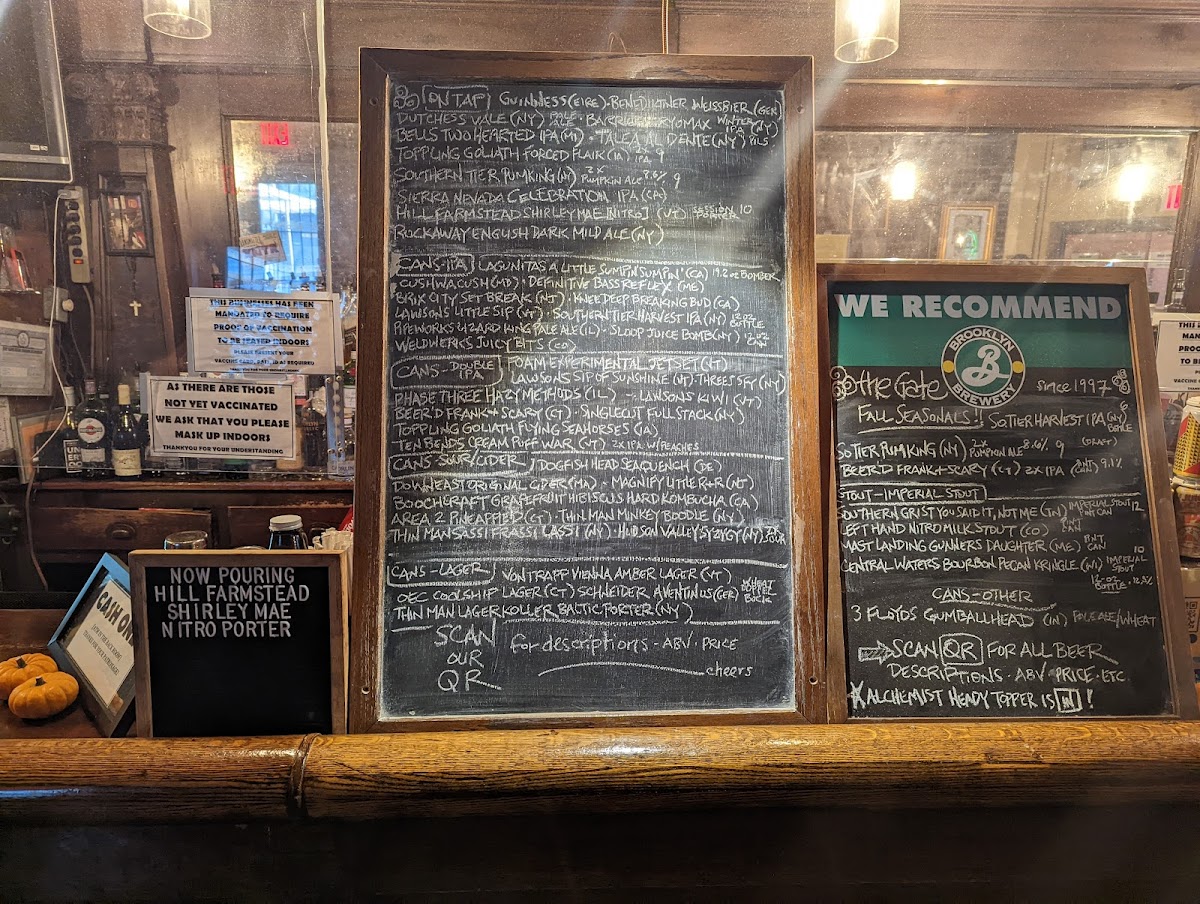 ON TAP GUINNESS (EIRE) · BENEDIKTINER WEISSBIER (GER)
DUTCHESS VALE (NY) ALE · BARRIER CRYOMAX WINTER IPA (NY)
BELLS TWO HEARTED IPA (MI) · TALEA AL DENTE (NY) PILS
TOPPLING GOLIATH FORCED FLAIR (IA) IPA 9
SOUTHERN TIER PUMKING (NY) 2X PUMPKIN ALE 8.6% 9
SIERRA NEVADA CELEBRATION IPA (CA)
HILL FARMSTEAD SHIRLEY MAE [NITRO] (VT) SESSION PORTER 10
ROCKAWAY ENGLISH DARK MILD ALE (NY)
CANS-IPA LAGUNITAS A LITTLE SUMPIN SUMPIN' (CA) 19.2 OZ BOMBER
CUSHWA CUSH (MD) · DEFINITIVE BASS REFLEX (ME)
BRIX CITY SET BREAK (NJ) · KNEE DEEP BREAKING BUD (CA)
LAWSONS LITTLE SIP (VT) · SOUTHERN TIER HARVEST IPA (NY) 12 OZ BOTTLE
PIPEWORKS LIZARD KING PALE ALE (IL) · SLOOP JUICE BOMB (NY) 12 OZ CAN
WELDWERKS JUICY BITS (CO)
CANS-DOUBLE IPA FOAM EXPERIMENTAL JET SET (VT)
LAWSONS SIP OF SUNSHINE (VT) · THREES SFY (NY)
PHASE THREE HAZY METHODS (IL) - LAWSONS KIWI (VT)
BEER'D FRANK + SCARY (CT) · SINGLECUT FULL STACK (NY)
TOPPLING GOLIATH FLYING SEAHORSES (IA)
TEN BENDS CREAM PUFF WAR (VT) 2X IPA W/PEACHES
CANS-SOUR/CIDER DOGFISH HEAD SEAQUENCH (DE)
DOWNEAST ORIGINAL CIDER (MA) - MAGNIFY LITTLE R+R (NJ)
BOOCHCRAFT GRAPEFRUIT HIBISCUS HARD KOMBUCHA (CA)
AREA 2 PINEAPPLED (CT) · THIN MAN MINKEY BOODLE (NY)
THIN MAN SASSI FRASSI LASSI (NY) · HUDSON VALLEY SYZYGY (NY) 2X SOUR
CANS-LAGER VON TRAPP VIENNA AMBER LAGER (VT)
OEC COOLSHIP LAGER (CT) SCHNEIDER AVENTINUS (GER) WHEAT DOPPEL BOCK
THIN MAN LAGER KOLLER BALTIC PORTER (NY)
SCAN OUR QR for descriptions - ABV · PRICE
cheers
WE RECOMMEND
BROOKLYN
B
BREWERY
@the Gate since 1997
FALL SEASONALS!! SO.TIER HARVEST IPA (NY) 6 BOTTLE
SO TIER PUMKING (NY) 2X PUMPKIN ALE 8.6% 9 (DRAFT)
BEER'D FRANK + SCARY (CT) 2X IPA (PINT CAN) 9.1%
STOUT-IMPERIAL STOUT
SOUTHERN GRIST YOU SAID IT, NOT ME (TN) IMPERIAL STOUT 12 PINT CAN
LEFT HAND NITRO MILK STOUT (CO) CAN
MAST LANDING GUNNERS DAUGHTER (ME) PINT CAN
CENTRAL WATERS BOURBON PECAN KRINGLE (WI) IMPERIAL STOUT 10
12 OZ BOTTLE
CANS-OTHER
3 FLOYDS GUMBALLHEAD (IN) PALE ALE/WHEAT
SCAN QR FOR ALL BEER
DESCRIPTIONS · ABV · PRICE · ETC.
ALCHEMIST HEADY TOPPER IS IN!
THIS BUSINESS HAS BEEN
MANDATED TO REQUIRE
PROOF OF VACCINATION
TO BE SEATED INDOORS
PLEASE PRESENT YOUR
AS THERE ARE THOSE
NOT YET VACCINATED
WE ASK THAT YOU PLEASE
MASK UP INDOORS
THANKYOU FOR YOUR UNDERSTANDING
NOW POURING
HILL FARMSTEAD
SHIRLEY MAE
NITRO PORTER
CASH ONLY